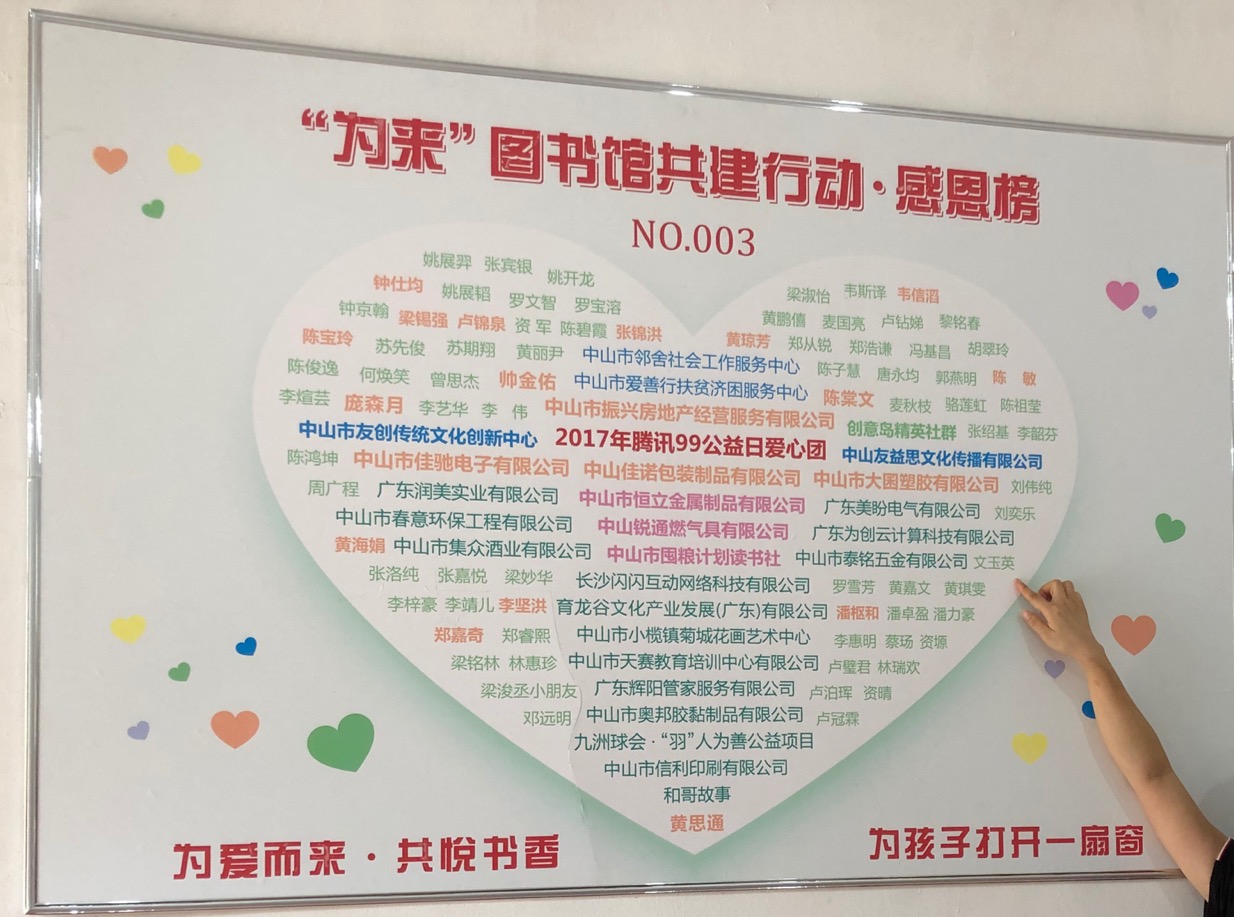 “为来”图书馆共建行动·感恩榜
NO.003
姚展羿 张宾银 姚开龙
梁淑怡 韦斯译 韦信滔
钟仕均 姚展韬 罗文智 罗宝溶
黄鹏僖 麦国亮 卢钻娣 黎铭春
钟京翰 梁锡强 卢锦泉 资军 陈碧霞 张锦洪
黄琼芳 郑从锐 郑浩谦 冯基昌 胡翠玲
陈宝玲 苏先俊 苏期翔 黄丽尹 中山市邻舍社会工作服务中心 陈子慧 唐永均 郭燕明 陈敏
陈俊逸 何焕笑 曾思杰 帅金佑 中山市爱善行扶贫济困服务中心 陈棠文 麦秋枝 骆莲虹 陈祖莹
李煊芸 庞森月 李艺华 李伟 中山市振兴房地产经营服务有限公司 创意岛精英社群 张绍基 李韶芬
中山市友创传统文化创新中心 2017年腾讯99公益日爱心团 中山友益思文化传播有限公司
陈鸿坤 中山市佳驰电子有限公司 中山佳诺包装制品有限公司 中山市大囷塑胶有限公司 刘伟纯
周广程 广东润美实业有限公司 中山市恒立金属制品有限公司 广东美盼电气有限公司 刘奕乐
中山市春意环保工程有限公司 中山锐通燃气具有限公司 广东为创云计算科技有限公司
黄海娟 中山市集众酒业有限公司 中山市囤粮计划读书社 中山市泰铭五金有限公司 文玉英
张洛纯 张嘉悦 梁妙华 长沙闪闪互动网络科技有限公司 罗雪芳 黄嘉文 黄琪雯
李梓豪 李靖儿 李坚洪 育龙谷文化产业发展(广东)有限公司 潘枢和 潘卓盈 潘力豪
郑嘉奇 郑睿熙 中山市小榄镇菊城花画艺术中心 李惠明 蔡玚 资塬
梁铭林 林惠珍 中山市天赛教育培训中心有限公司 卢璧君 林瑞欢
梁浚丞小朋友 广东辉阳管家服务有限公司 卢泊珲 资晴
邓远明 中山市奥邦胶黏制品有限公司 卢冠霖
九洲球会·“羽”人为善公益项目
中山市信利印刷有限公司
和哥故事
黄思通
为爱而来·共悦书香
为孩子打开一扇窗